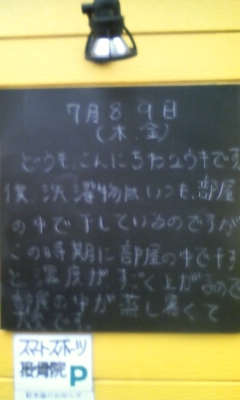 7月8 9日
(木、金)
どうも、こんにちわユウキです
僕、洗濯物はいつも、部屋
の中で干しているのですが
この時期に部屋の中で干す
と、湿度がすごく上がるので
部屋の中が蒸し暑くて
大変です。
スマートスポーツ
接骨院 P
駐車場のお知らせ